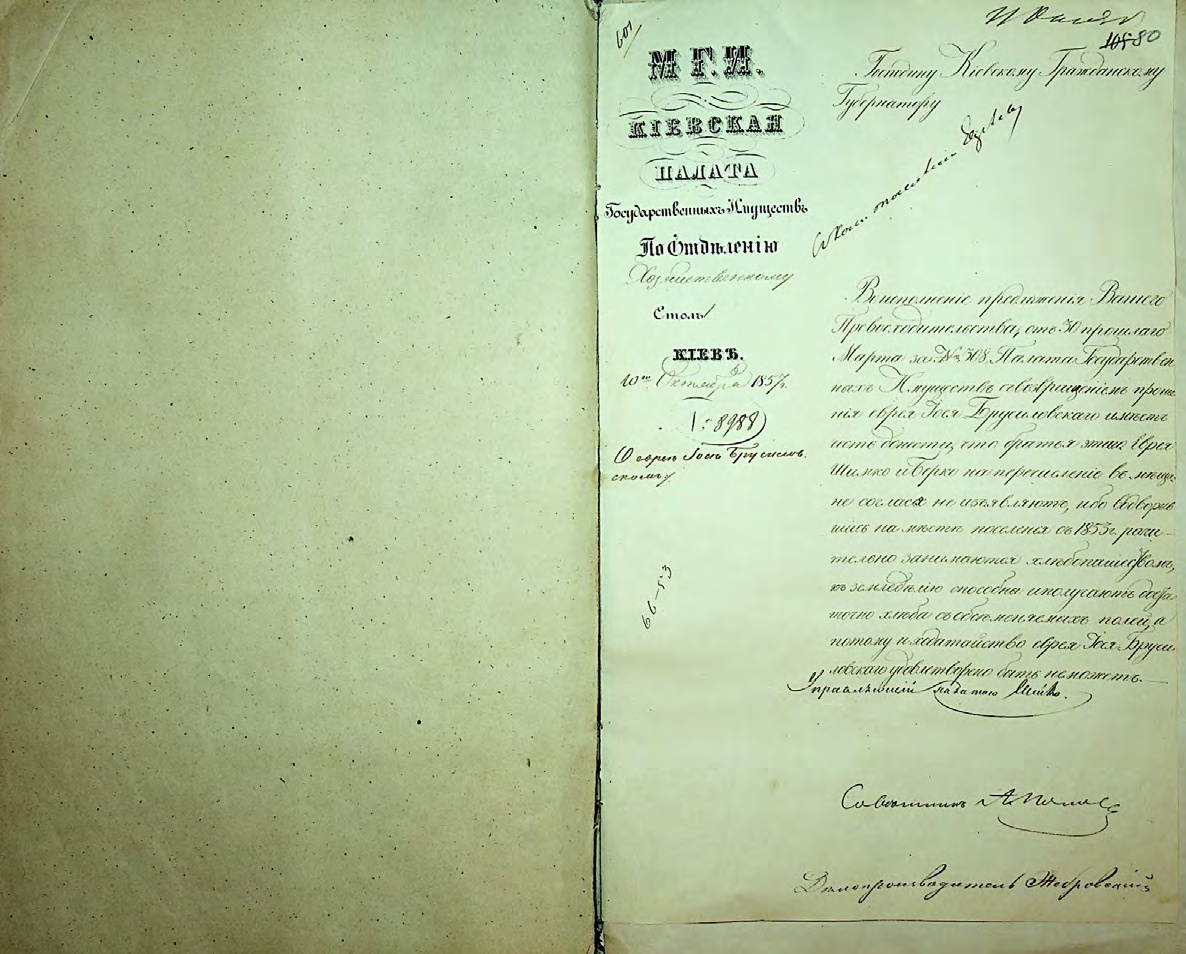 601
108 80
М Г. И.
КІЕВСКАЯ
ПАЛАТА
Государственныхъ Имуществъ
По Отдѣленію
Хозяйственному
Столъ
КІЕВЪ.
10го Октября 1857г.
№ 8988
О евреѣ Іосѣ Брусилов-
скомъ.
66-53
Господину Кіевскому Гражданскому
Губернатору
Во исполненіе предложенія Вашего
Превосходительства, отъ 30 прошлаго
Марта за № 308. Палата Государствен
ныхъ Имуществъ съ возвращеніемъ проше
нія еврея Іося Брусиловскаго имѣетъ
честь донести, что братья этого Еврея
Шимко и Берко на перечисленіе въ мѣща
не согласія не изъявляютъ, ибо водворив
шись на мѣстѣ поселенія съ 1853г. рачи-
тельно занимаются хлѣбопашествомъ,
къ земледѣлію способны и получаютъ доста
точно хлѣба съ обсѣменяемыхъ полей, а
потому и ходатайство еврея Іося Бруси
ловскаго удовлетворено быть не можетъ.
Управляющій палатою
Совѣтникъ
Дѣлопроизводитель